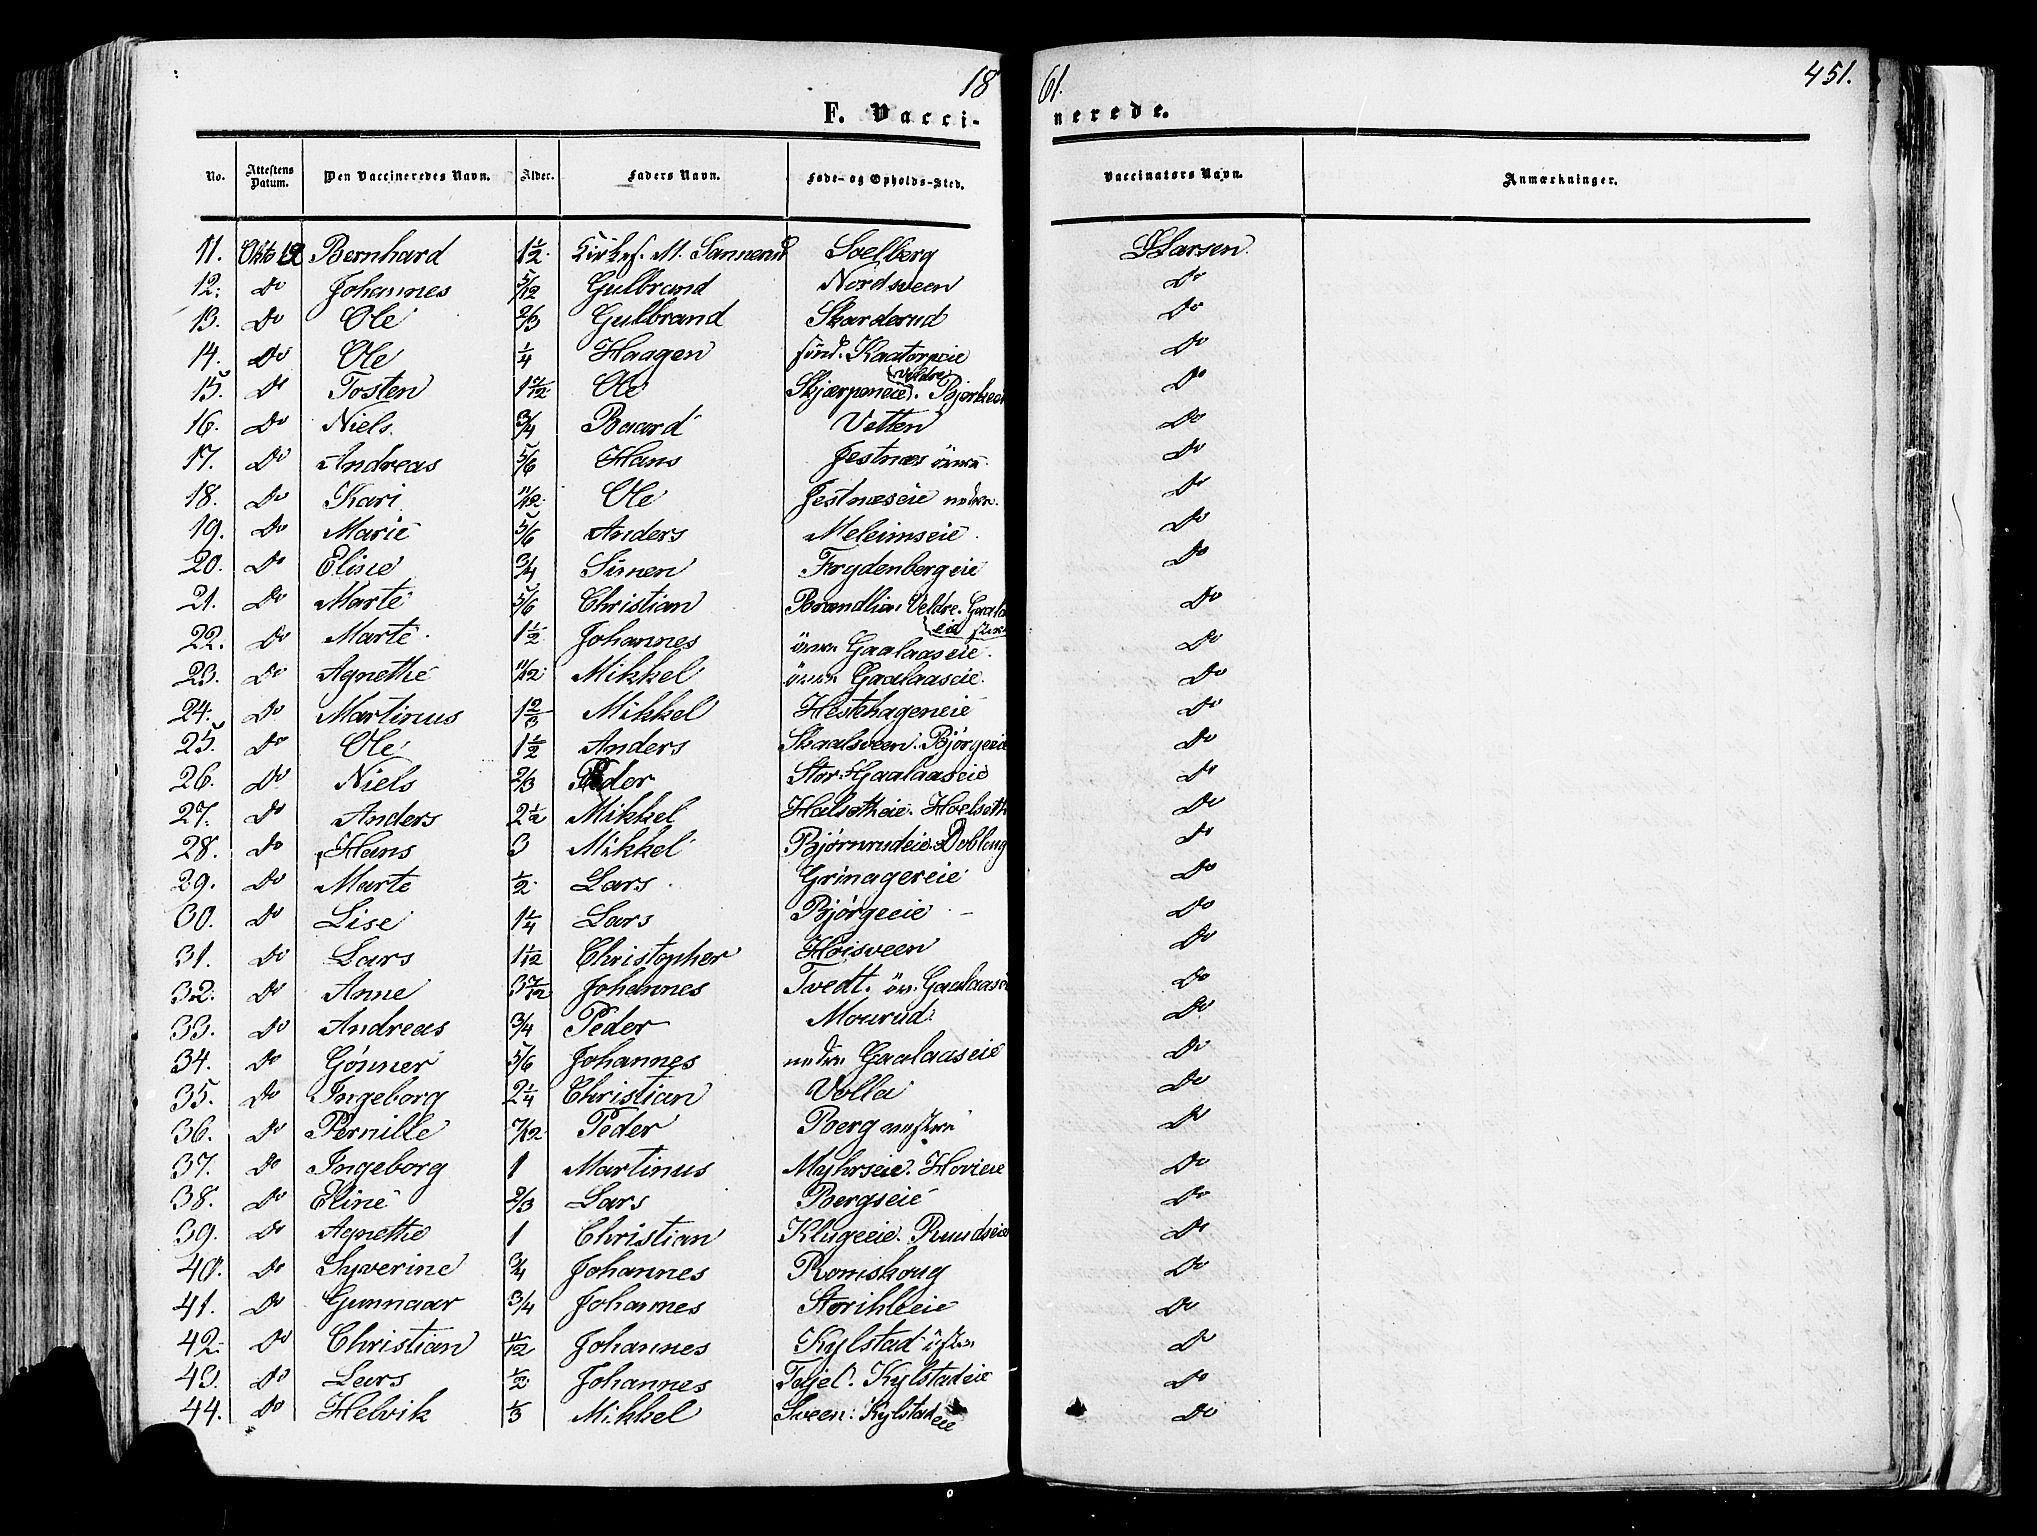 18 61. 451.
F. Vacci- nerede.
No. Attestens Datum. Den Vaccineredes Navn. Alder. Faders Navn. Føde- og Opholds-Sted. Vaccinators Navn. Anmærkninger.
11. Okto 12 Bernhard 1 1/2 Kirkes. M. Sannerud Soelberg Larsen.
12. Do Johannes 5/12 Gulbrand Nordsveen Do
13. Do Ole 2/3 Gulbrand Skarderud Do
14. Do Ole 1/4 Haagen sønd. Kaatorpeie Do
15. Do Tosten 1 5/12 Ole Skjærpeneie (Veldre). Bjørkeeie Do
16. Do Niels. 3/4 Baard Vetten Do
17. Do Andreas 5/6 Hans Jestnæs övre Do
18. Do Kari 11/12. Ole Jestnæseie nedre. Do
19. Do Marie 5/6 Anders Meleimseie. Do
20. Do Eline 3/4 Simen Frydenbergeie Do
21. Do Marte 5/6 Christian Brændlia. Veldre. Gaalaas eie Do
22. Do Marte. 1 1/2 Johannes övre Gaalaaseie. Do
23. Do Agnethe 11/12. Mikkel övre Gaalaaseie. Do
24. Do Martinus 1 2/3 Mikkel Hestehageneie Do
25. Do Ole 1 1/2 Anders Skaalsveen. Bjørgeeie Do
26. Do Niels 2/3 Peder Stor-Gaalaaseie Do
27. Do Anders 2 1/2 Mikkel Hoelsetheie. Hoelseth Do
28. Do Hans 3 Mikkel Bjørnrudeie. Dobloug Do
29. Do Marte 1/2. Lars. Grinagereie Do
30. Do Lise 1 1/4 Lars Bjørgeeie Do
31. Do Lars 1 1/12 Christopher Høisveen Do
32. Do Anne 3 7/12 Johannes Tvedt. öv. Gaalaasei Do
33. Do Andreas 3/4 Peder Mourud. Do
34. Do Gönner 5/6 Johannes nedre Gaalaaseie Do
35. Do Ingeborg 2 1/4 Christian Volla Do
36. Do Pernille 7/12 Peder Berg vestre Do
37. Do Ingeborg 1 Martinus Myhrseie. Hovieie Do
38. Do Eline 2/3 Lars Bergseie Do
39. Do Agnethe 1 Christian Klugeeie. Ruudseie Do
40. Do Syverine 3/4 Johannes Romskoug Do
41. Do Gunnaar 3/4 Johannes Storihleeie Do
42. Do Christian 11/12 Johannes Kylstad östre Do
43. Do Lars 1/2 Johannes Tajel. Kylstadeie Do
44. Do Helvik 1/3 Mikkel Sveen. Kylstadeie Do